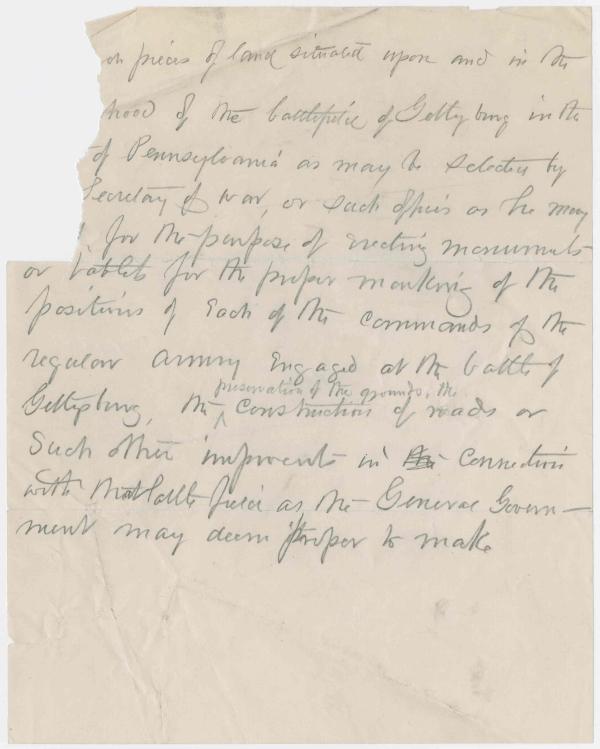 or pieces of land situated upon and in the
hood of the battlefield of Gettysburg in the
of Pennsylvania as may be selected by
Secretary of War, or such officer as he may
for the purpose of erecting monuments
or tablets for the proper marking of the
positions of each of the commands of the
regular army engaged at the battle of
preservation of the grounds, the
Gettysburg, the construction of roads or
such other improvements in connection
with that battlefield as the General Govern-
ment may deem proper to make